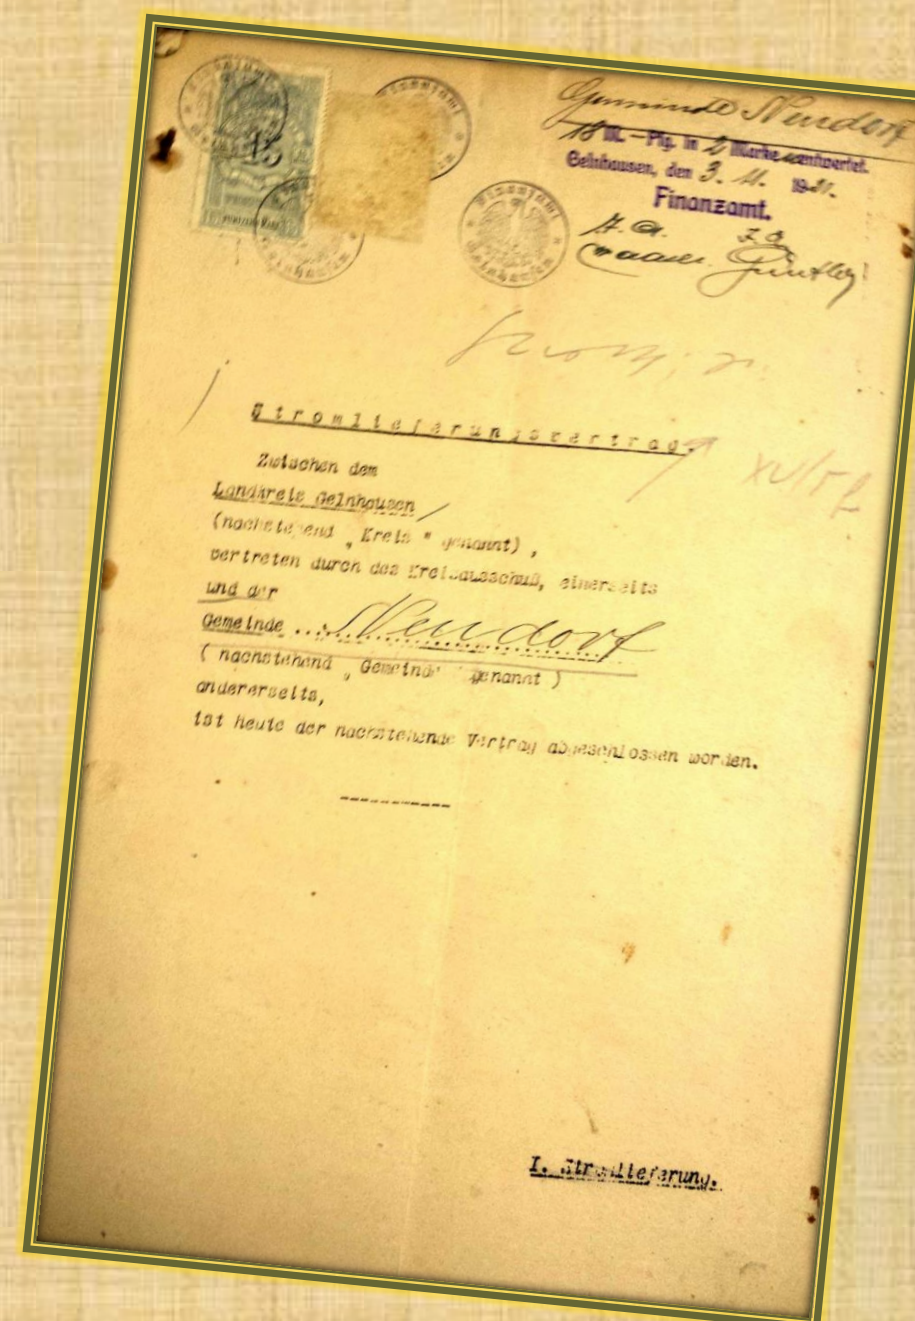 Gemeinde Neudorf
18 M. — Pfg. in 2 Marken entwertet.
Gelnhausen, den 3. 11. 1921.
Finanzamt.
J. A.
Finanzamt
Gelnhausen
15
Stromlieferungsvertrag.
Zwischen dem
Landkreis Gelnhausen
(nachstehend „Kreis" genannt),
vertreten durch den Kreisausschuß, einerseits
und der
Gemeinde ... Neudorf
( nachstehend „Gemeinde" genannt )
andererseits,
ist heute der nachstehende Vertrag abgeschlossen worden.
-----------
I. Stromlieferung.